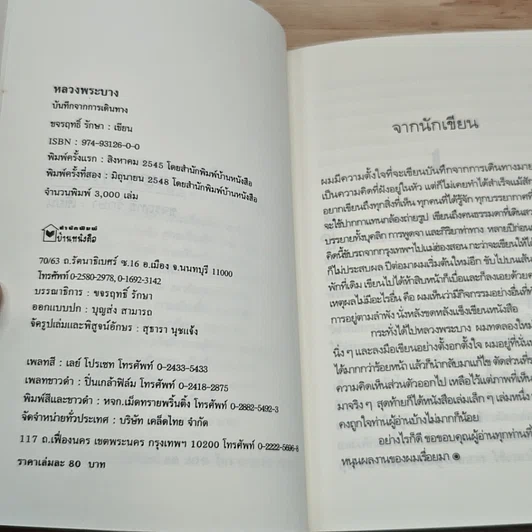 หลวงพระบาง
บันทึกจากการเดินทาง
ขจรฤทธิ์ รักษา : เขียน
ISBN : 974-93126-0-0
พิมพ์ครั้งแรก : สิงหาคม 2545 โดยสำนักพิมพ์บ้านหนังสือ
พิมพ์ครั้งที่สอง : มิถุนายน 2548 โดยสำนักพิมพ์บ้านหนังสือ
จำนวนพิมพ์ 3,000 เล่ม
สำนักพิมพ์
บ้านหนังสือ
70/63 ถ.รัตนาธิเบศร์ ซ.16 อ.เมือง จ.นนทบุรี 11000
โทรศัพท์ 0-2580-2978, 0-1692-3142
บรรณาธิการ : ขจรฤทธิ์ รักษา
ออกแบบปก : บุญส่ง สามารถ
จัดรูปเล่มและพิสูจน์อักษร : สุธารา นุชแจ้ง
เพลทสี : เลย์ โปรเซท โทรศัพท์ 0-2433-5433
เพลทขาวดำ : ปิ่นเกล้าฟิล์ม โทรศัพท์ 0-2418-2875
พิมพ์สีและขาวดำ : หจก.เม็ดทรายพริ้นติ้ง โทรศัพท์ 0-2882-5492-3
จัดจำหน่ายทั่วประเทศ : บริษัท เคล็ดไทย จำกัด
117 ถ.เฟื่องนคร เขตพระนคร กรุงเทพฯ 10200 โทรศัพท์ 0-2222-5698-
ราคาเล่มละ 80 บาท
จากนักเขียน
ผมมีความตั้งใจที่จะเขียนบันทึกจากการเดินทางมา
เป็นความคิดที่ฝังอยู่ในหัว แต่ก็ไม่เคยทำได้สำเร็จแม้สัก
อยากเขียนถึงทุกสิ่งที่เห็น ทุกคนที่ได้รู้จัก ทุกบรรยากาศที่
จะใช้ปากกาแทนกล้องถ่ายรูป เขียนถึงคนธรรมดาที่เดิน
บรรยายทั้งบุคลิก การพูดจา และกิริยาท่าทาง หลายปีก่อน
คิดนี้ขับรถจากกรุงเทพฯไปแม่ฮ่องสอน กะว่าจะเขียนให้
ก็ไม่ประสบผล ปีต่อมาผมเริ่มต้นใหม่อีก ขับไปบน
พักที่เดิม เขียนไปได้ห้าสิบหน้าก็เบื่อและก็ลงเอยด้วย
เหตุผลไม่มีอะไรอื่น คือ ผมเห็นว่ามีกิจกรรมอย่างอื่นที่
การอยู่ตามลำพัง นั่งหลังขดหลังแข็งเขียนหนังสือ
กระทั่งได้ไปหลวงพระบาง ผมทดลองใหม่
นิ่งๆ และลงมือเขียนอย่างตั้งอกตั้งใจ ผมอยู่ที่นั่น
ได้มากกว่าร้อยหน้า แล้วก็นำกลับมาแก้ไข ตัดส่วนที่
ความคิดเห็นส่วนตัวออกไป เหลือไว้แต่ภาพที่เห็น
มาจริงๆ สุดท้ายก็ได้หนังสือเล่มเล็กๆ เล่มหนึ่ง
คงถูกใจท่านผู้อ่านบ้างไม่มากก็น้อย
อย่างไรก็ดี ขอขอบคุณผู้อ่านทุกท่านที่
หนุนผลงานของผมเรื่อยมา